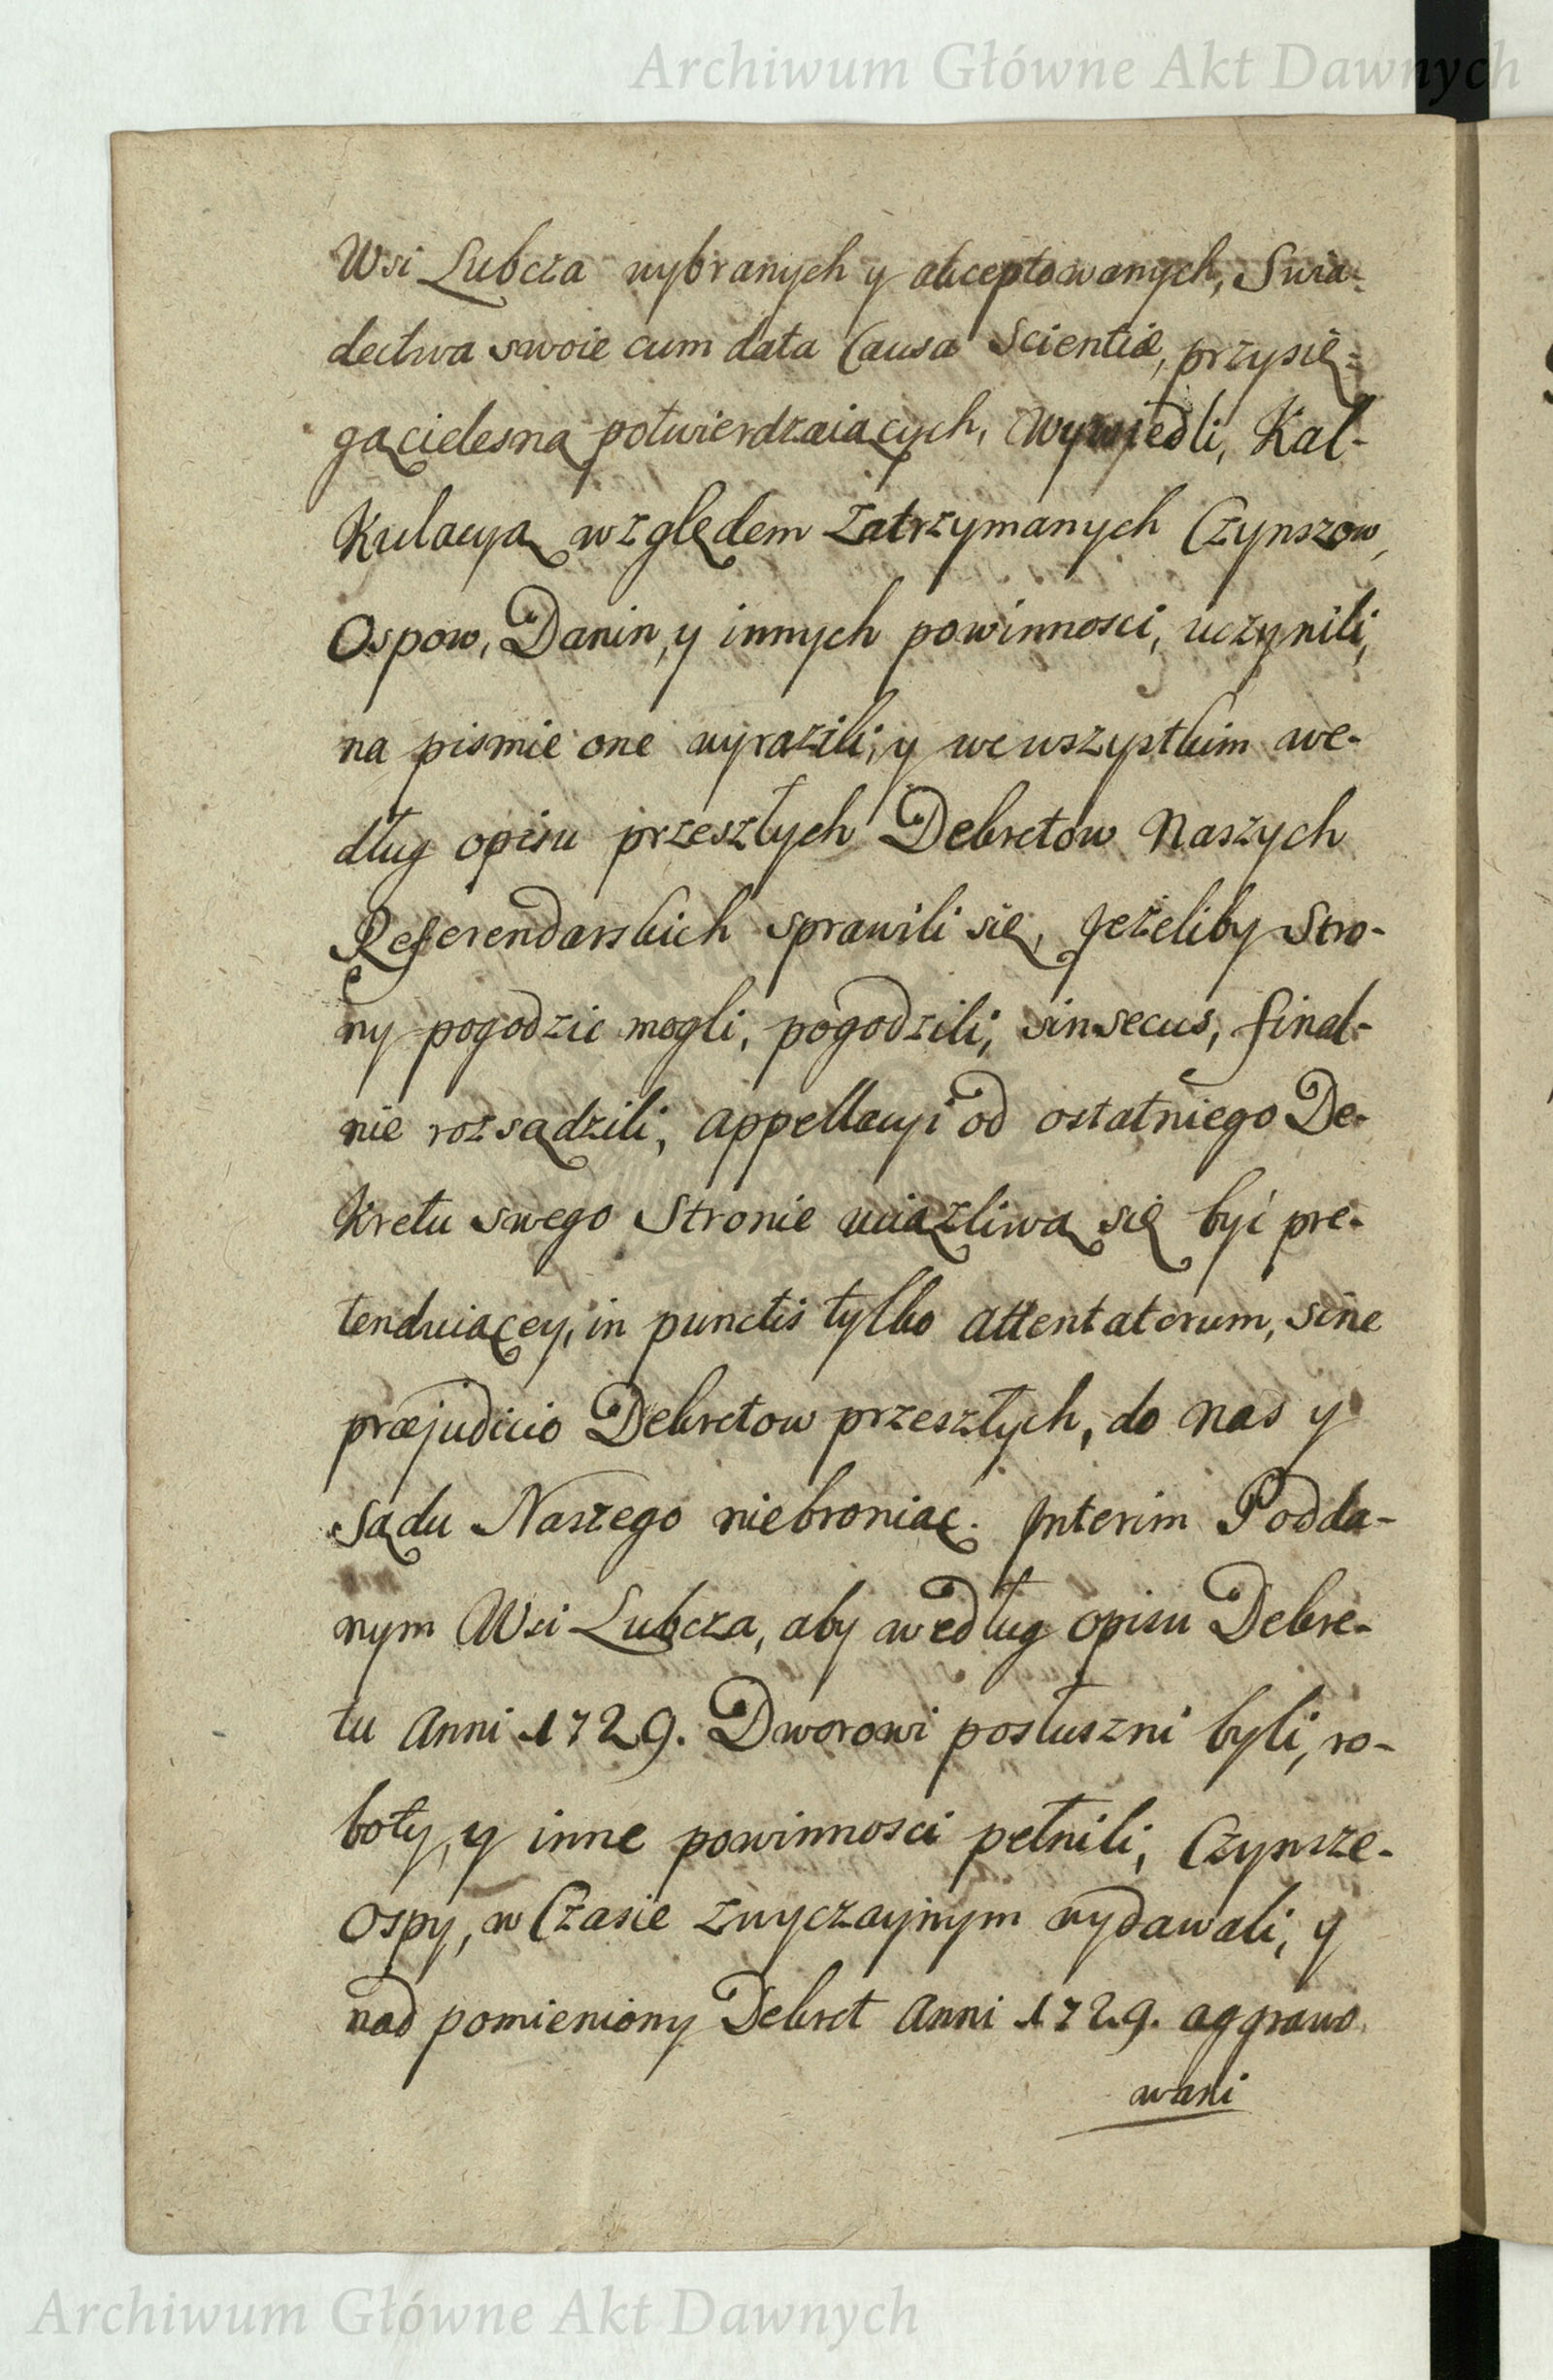 Archiwum Główne Akt Dawnych
Wsi Lubcza wybranych y akceptowanych, Swia-
dectwa swoie cum data Causa Scientiæ, przysię-
gą cielesną potwierdzaiących, Wywiedli, Kal-
Kulacyą względem Zatrzymanych Czynszow,
Ospow, Danin, y innych powinnosci, uczynili,
na pismie one wyrazili, y we wszystkim we-
dług opisu przeszłych Dekretow Naszych
Referendarskich sprawili się, Jeżeliby Stro-
ny pogodzic mogli, pogodzili, sin secus, final-
nie rozsądzili, appellacyi od ostatniego De-
Kretu swego Stronie uciązliwą się byi pre-
tenduiącey, in punctis tylko attentatorum, sine
præjudicio Dekretow przeszłych, do Nas y
Sądu Naszego niebroniąc. Interim Podda-
nym Wsi Lubcza, aby według opisu Dekre-
tu Anni 1729. Dworowi posłuszni byli, ro-
boty, y inne powinnosci pełnili, Czynsze-
Ospy, w Czasie Zwyczaynym wydawali, y
nad pomieniony Dekret Anni 1729. aggrawo
wani
Archiwum Główne Akt Dawnych